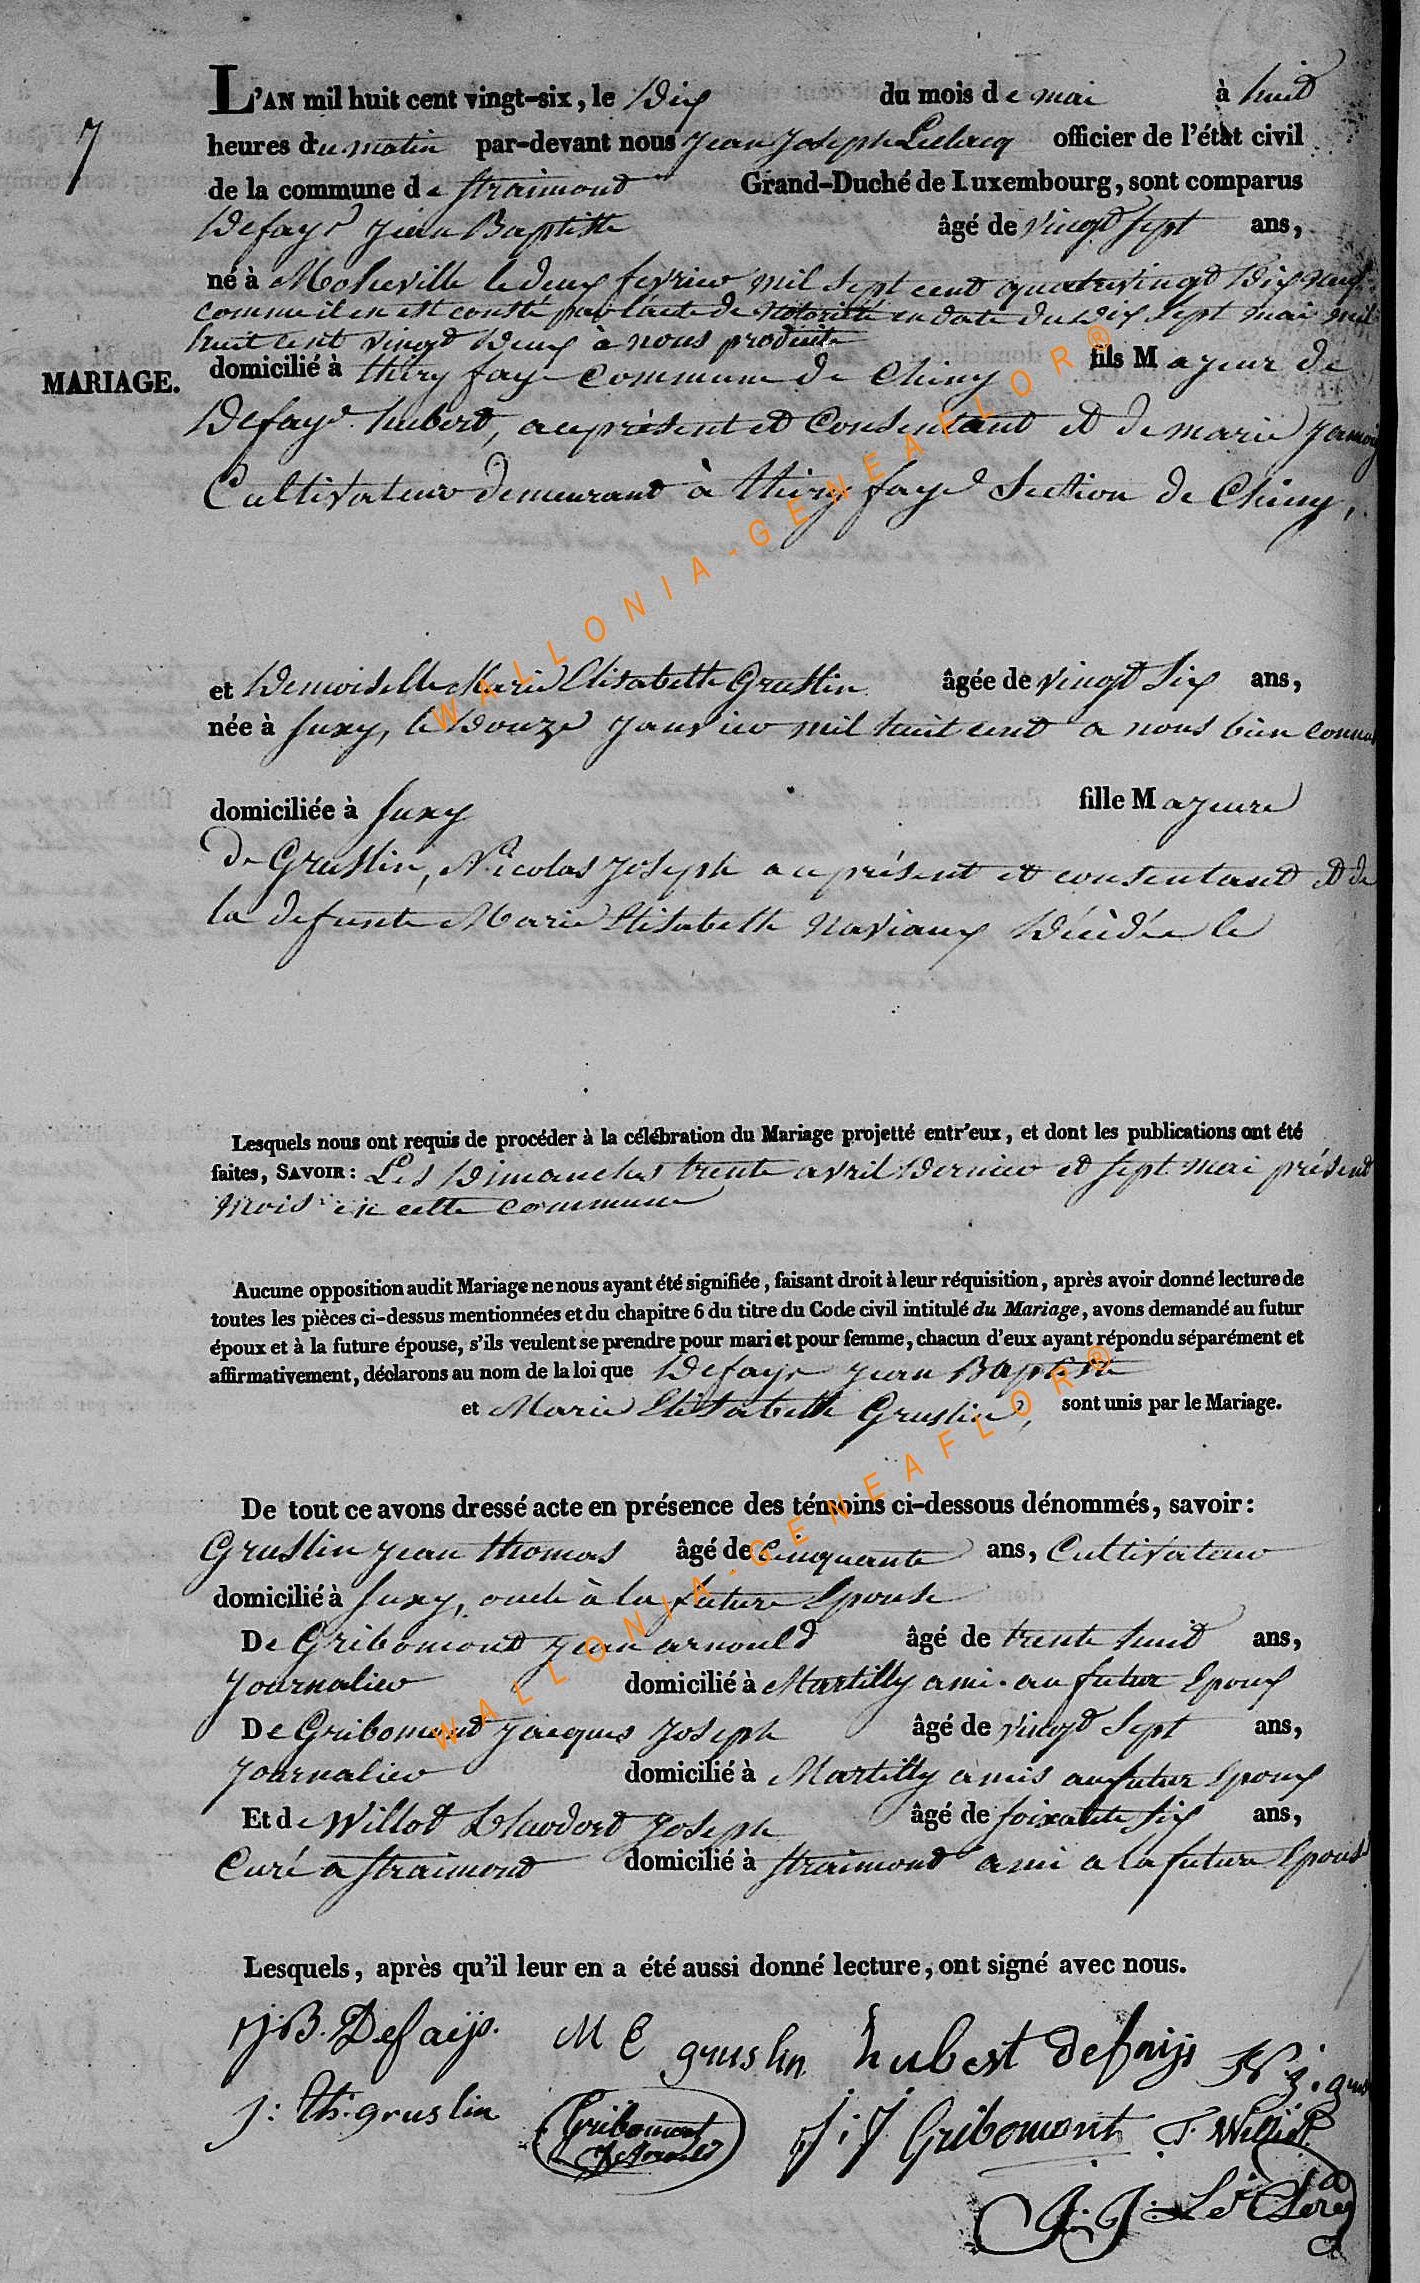 L'AN mil huit cent vingt-six, le Dix du mois de mai à huit
7
heures du matin par-devant nous Jean Joseph Leclercq officier de l'état civil
de la commune de Straimont Grand-Duché de Luxembourg, sont comparus
Defays Jean Baptiste âgé de vingt sept ans,
né à le deux fevrier mil sept cent quatrevingt Dix neuf
comme il en est consté par l'acte de Notoriété en date du dix sept mai mil
huit cent vingt deux à nous produite
MARIAGE.
domicilié à thiry faye commune de Chiny fils Majeur de
Defays hubert, ace présent et Consentant et de marie
Cultivateur demeurant à thiry faye Section de Chiny,
et Demoiselle Marie Elisabette Gruslin âgée de vingt Six ans,
née à Suxy, le Douze Janvier mil huit cent a nous bien connue
domiciliée à Suxy fille Majeure
de Gruslin, Nicolas Joseph ace présent et consentant et de
la defunte Marie Elisabette Naviaux Décédée le
Lesquels nous ont requis de procéder à la célébration du Mariage projetté entr'eux, et dont les publications ont été
faites, SAVOIR: Les Dimanches trente avril Dernier et sept mai présent
mois en cette commune
Aucune opposition audit Mariage ne nous ayant été signifiée, faisant droit à leur réquisition, après avoir donné lecture de
toutes les pièces ci-dessus mentionnées et du chapitre 6 du titre du Code civil intitulé du Mariage, avons demandé au futur
époux et à la future épouse, s'ils veulent se prendre pour mari et pour femme, chacun d'eux ayant répondu séparément et
affirmativement, déclarons au nom de la loi que Defays Jean Baptiste
et Marie Elisabette Gruslin, sont unis par le Mariage.
De tout ce avons dressé acte en présence des témoins ci-dessous dénommés, savoir:
Gruslin Jean thomas âgé de Cinquante ans, Cultivateur
domicilié à Suxy, oncle à la future Epouse
De Gribomont Jean arnould âgé de trente huit ans,
Journalier domicilié à Martilly ami au futur Epoux
De Gribomont Jacques Joseph âgé de vingt Sept ans,
Journalier domicilié à Martilly amis au futur Epoux
Et de Willot Joseph âgé de soixante six ans,
Curé a Straimont domicilié à Straimont ami a la future Epouse
Lesquels, après qu'il leur en a été aussi donné lecture, ont signé avec nous.
J:B. Defaijs. M E gruslin hubert defaijs N j. grus
j: th: gruslin Gribomont J Arnould J:J Gribomont
J:J: Le Clercq
WALLONIA-GENEAFLOR®
WALLONIA-GENEAFLOR®